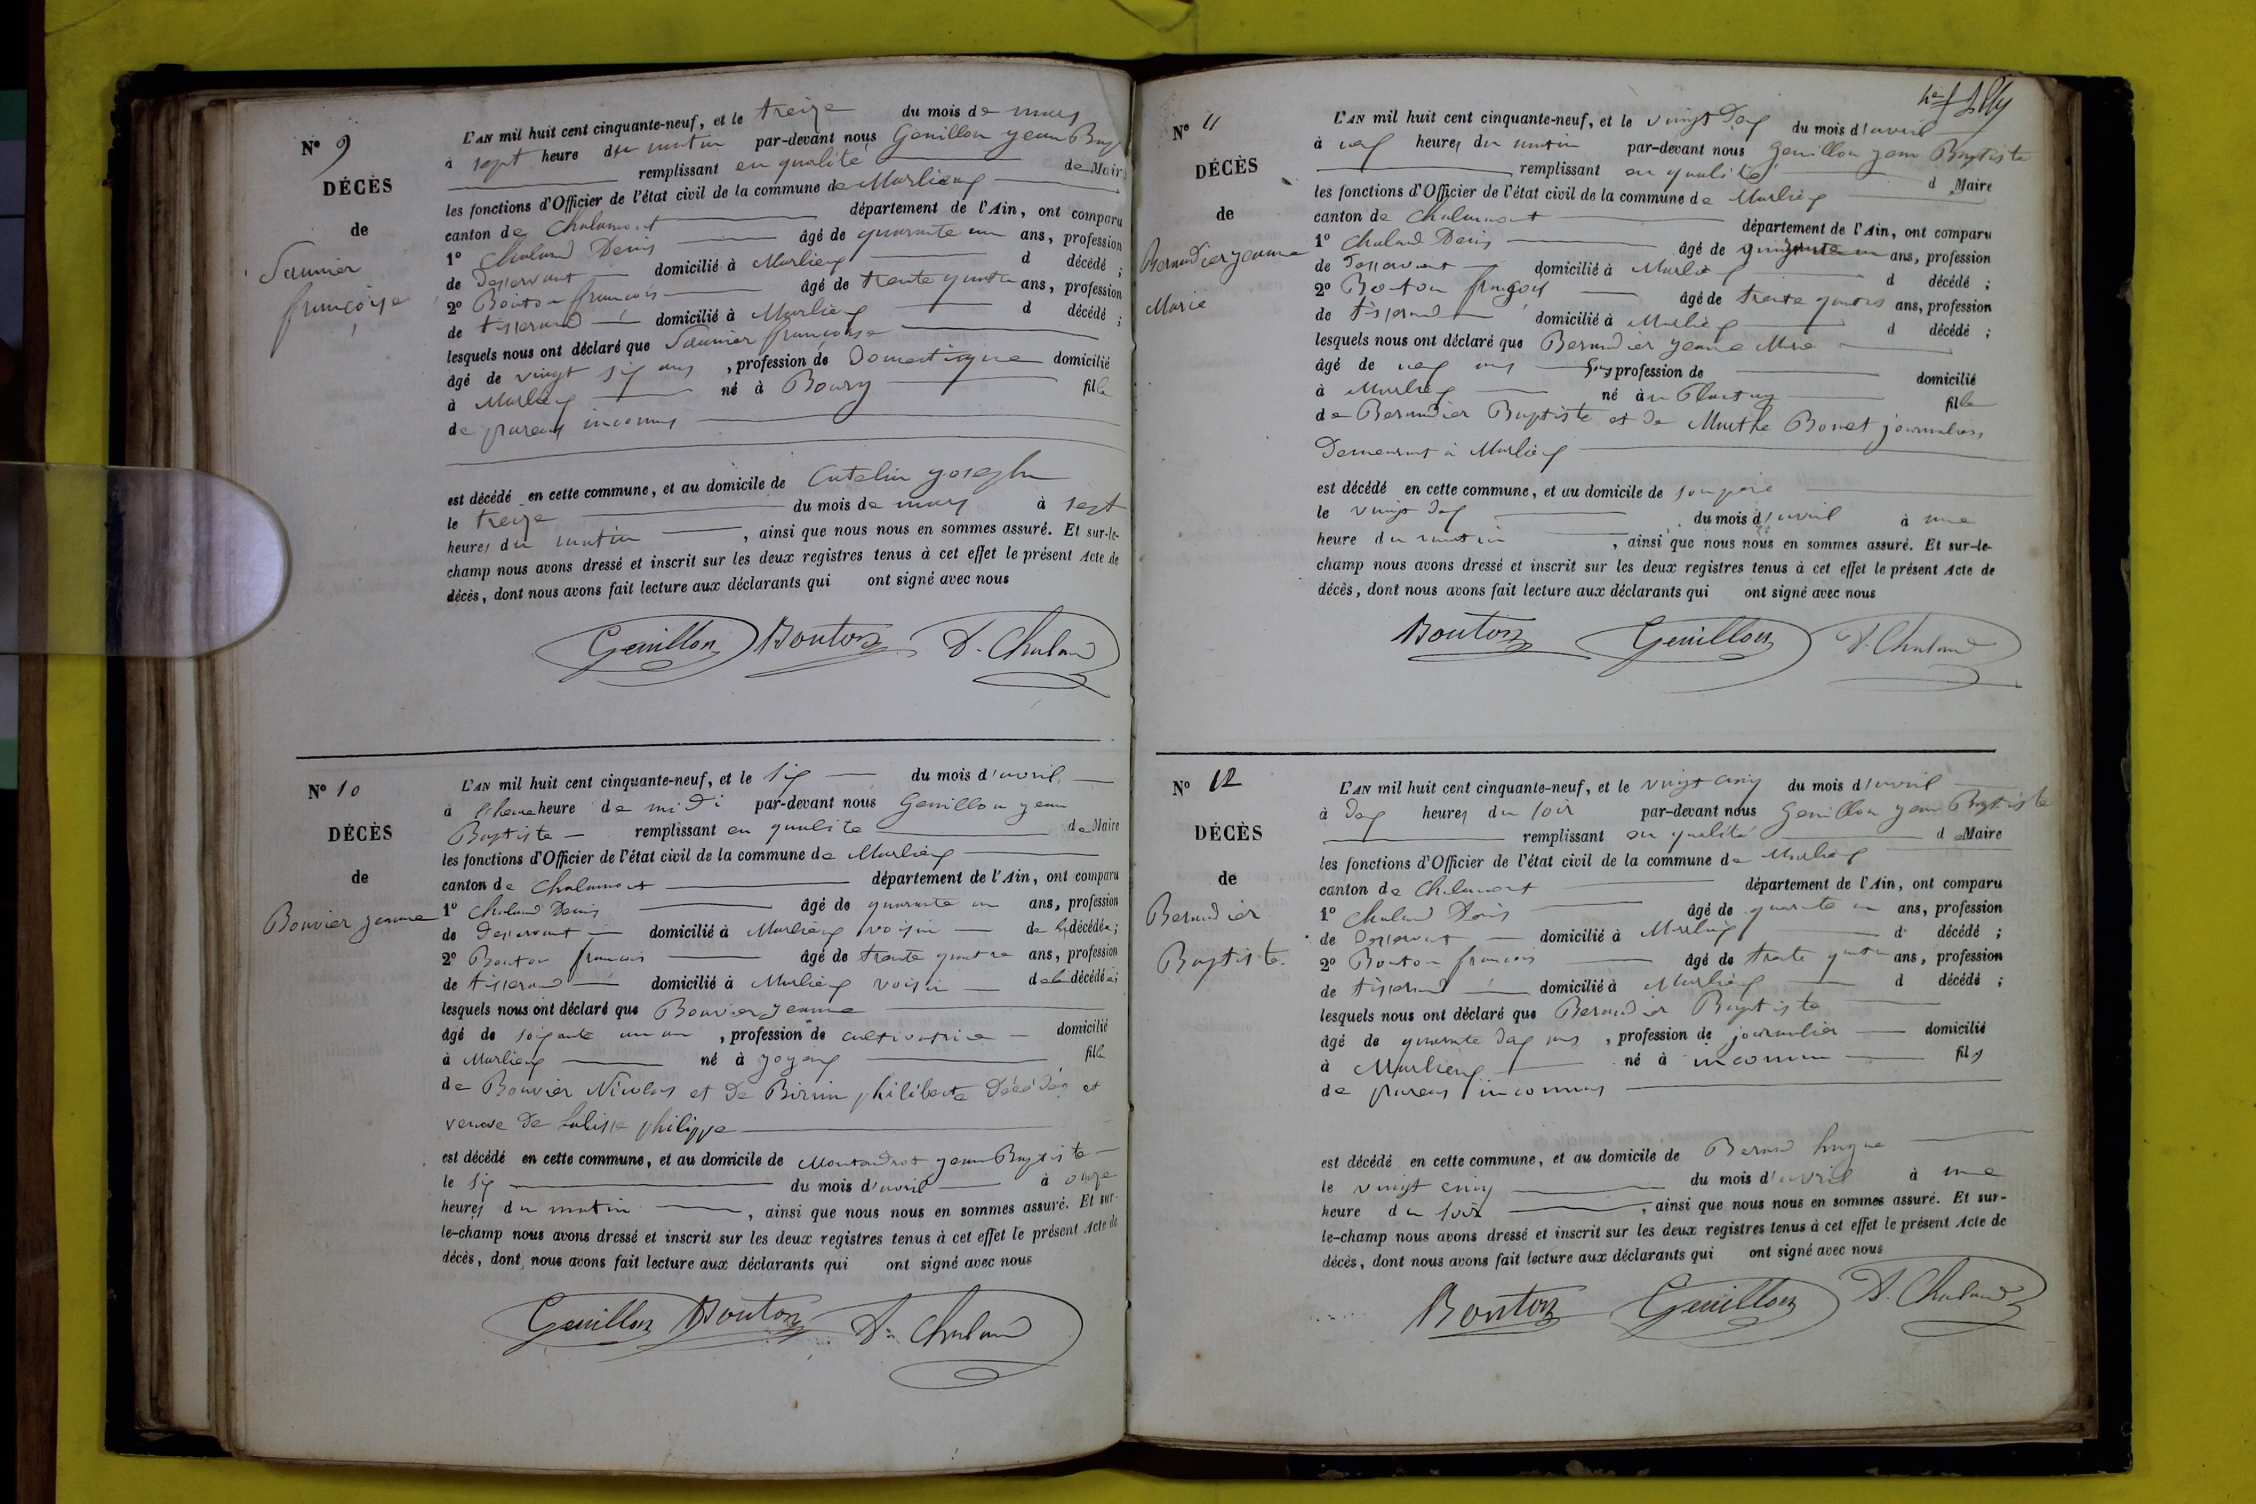 N° 9
DÉCÈS
de
Saunier
françoise
L'AN mil huit cent cinquante-neuf, et le treize du mois de mars
à sept heure du matin par-devant nous Genillon jean Bap
remplissant en qualité de Maire
les fonctions d'Officier de l'état civil de la commune de Marlieux
canton de Chalamont département de l'Ain, ont comparu
1° Chaland Denis âgé de quarante un ans, profession
de Desservant domicilié à Marlieux d décédé ;
2° Bouton françois âgé de trente quatre ans, profession
de tisserand domicilié à Marlieux d décédé ;
lesquels nous ont déclaré que Saunier françoise
âgé de vingt six ans , profession de Domestique domicilié
à Marlieux né à Bourg fille
de parens inconnus
est décédé en cette commune, et au domicile de Catelin joseph
le treize du mois de mars à sept
heures du matin , ainsi que nous nous en sommes assuré. Et sur-le-
champ nous avons dressé et inscrit sur les deux registres tenus à cet effet le présent Acte de
décès, dont nous avons fait lecture aux déclarants qui ont signé avec nous
Genillon Bouton D. Chaland
N° 10
DÉCÈS
de
Bouvier jeanne
L'AN mil huit cent cinquante-neuf, et le six du mois d'avril
à heure de midi par-devant nous Genillon jean
Baptiste remplissant en qualité de Maire
les fonctions d'Officier de l'état civil de la commune de Marlieux
canton de Chalamont département de l'Ain, ont comparu
1° Chaland Denis âgé de quarante un ans, profession
de Desservant domicilié à Marlieux voisin de la décédée ;
2° Bouton francois âgé de trente quatre ans, profession
de tisserand domicilié à Marlieux voisin de la décédée ;
lesquels nous ont déclaré que Bouvier jeanne
âgé de soixante un an , profession de cultivatrice domicilié
à Marlieux né à joyeux fille
de Bouvier Nicolas et de philiberte Décédés et
veuve de philippe
est décédé en cette commune, et au domicile de jean Baptiste
le six du mois d'avril à onze
heures du matin , ainsi que nous nous en sommes assuré. Et sur-
le-champ nous avons dressé et inscrit sur les deux registres tenus à cet effet le présent Acte de
décès, dont nous avons fait lecture aux déclarants qui ont signé avec nous
Genillon Bouton D. Chaland
N° 11
DÉCÈS
de
Beraudier jeanne
Marie
L'AN mil huit cent cinquante-neuf, et le vingt Dex du mois d'avril
à nef heures du matin par-devant nous Genillon jean Baptiste
remplissant en qualité d Maire
les fonctions d'Officier de l'état civil de la commune de Marlieux
canton de Chalamont département de l'Ain, ont comparu
1° Chaland Denis âgé de ans, profession
de Desservant domicilié à Marlieux d décédé ;
2° Bouton françois âgé de trente quatre ans, profession
de tisserand domicilié à Marlieux d décédé ;
lesquels nous ont déclaré que Beraudier jeanne Mrie
âgé de nef ans profession de domicilié
à Marlieux né au Plantay fille
de Beraudier Baptiste et de Marthe Bonet journaliers
Demeurant à Marlieux
est décédé en cette commune, et au domicile de son père
le vingt Dex du mois d'avril à une
heure du matin , ainsi que nous nous en sommes assuré. Et sur-le-
champ nous avons dressé et inscrit sur les deux registres tenus à cet effet le présent Acte de
décès, dont nous avons fait lecture aux déclarants qui ont signé avec nous
Bouton Genillon D. Chaland
N° 12
DÉCÈS
de
Beraudier
Baptiste.
L'AN mil huit cent cinquante-neuf, et le vingt cinq du mois d'avril
à Dex heures du soir par-devant nous Genillon jean Baptiste
remplissant en qualité de Maire
les fonctions d'Officier de l'état civil de la commune de Marlieux
canton de Chalamont département de l'Ain, ont comparu
1° Chaland Denis âgé de quarante un ans, profession
de Desservant domicilié à Marlieux d décédé ;
2° Bouton francois âgé de trente quatre ans, profession
de tisserand domicilié à Marlieux d décédé ;
lesquels nous ont déclaré que Beraudier Baptiste
âgé de quarante Dex ans , profession de journalier domicilié
à Marlieux né à inconnu fils
de parens inconnus
est décédé en cette commune, et au domicile de Beraud hugue
le vingt cinq du mois d'avril à une
heure du soir , ainsi que nous nous en sommes assuré. Et sur-
le-champ nous avons dressé et inscrit sur les deux registres tenus à cet effet le présent Acte de
décès, dont nous avons fait lecture aux déclarants qui ont signé avec nous
Bouton Genillon D. Chaland